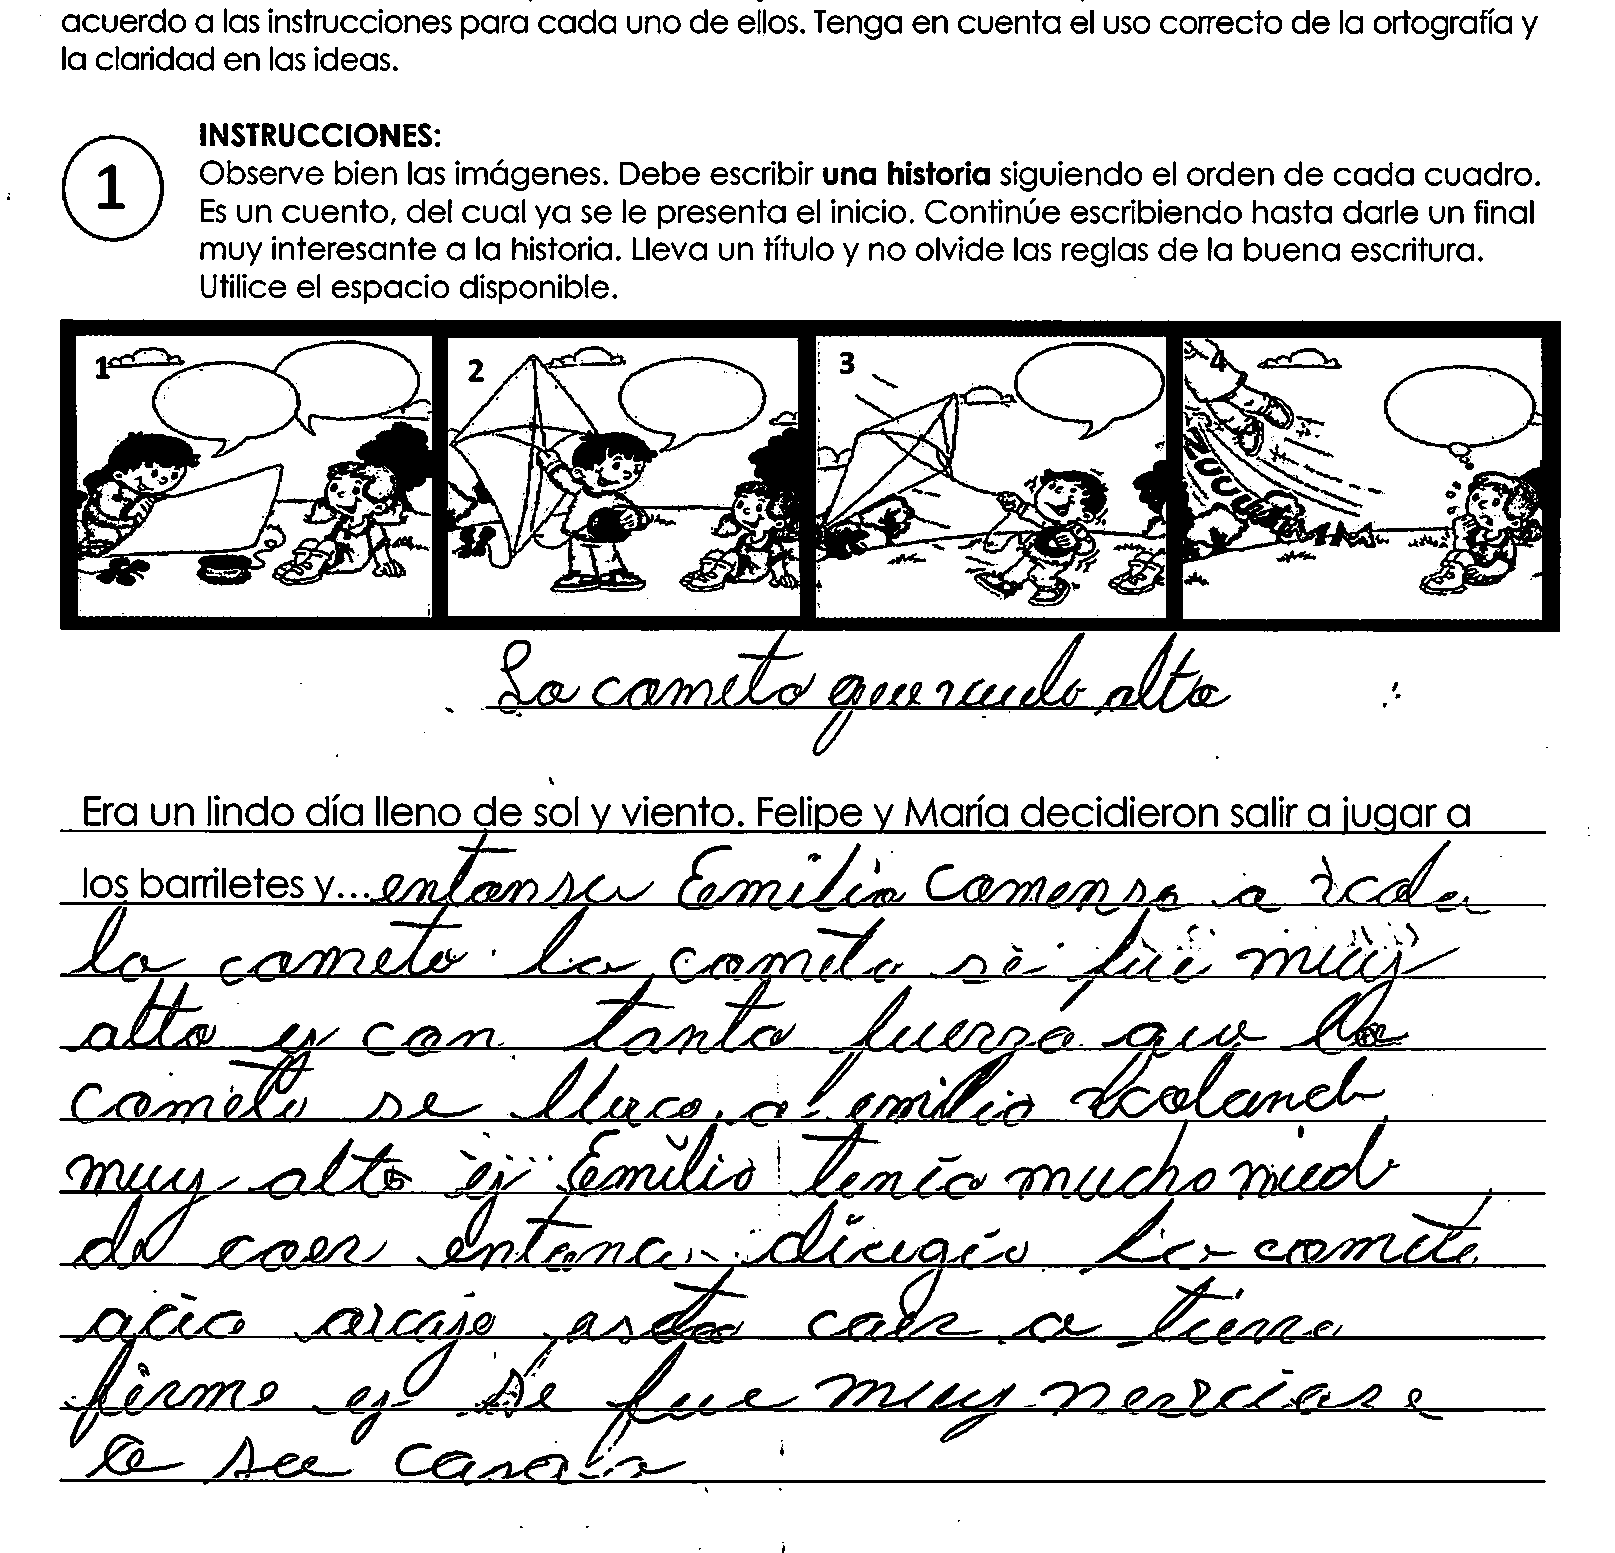 acuerdo a las instrucciones para cada uno de ellos. Tenga en cuenta el uso correcto de la ortografía y
la claridad en las ideas.
1
INSTRUCCIONES:
Observe bien las imágenes. Debe escribir una historia siguiendo el orden de cada cuadro.
Es un cuento, del cual ya se le presenta el inicio. Continúe escribiendo hasta darle un final
muy interesante a la historia. Lleva un título y no olvide las reglas de la buena escritura.
Utilice el espacio disponible.
1 2 3 4
La cometa que alto
Era un lindo día lleno de sol y viento. Felipe y María decidieron salir a jugar a
los barriletes y... Emilio comenso a
la cometa la cometa se fue muy
alto y con tanta fuerza que la
cometa se a emilio
muy alto y Emilio tenía mucho mied
de caer la cometa
caer a tierra
firme y se fue muy
a su casa